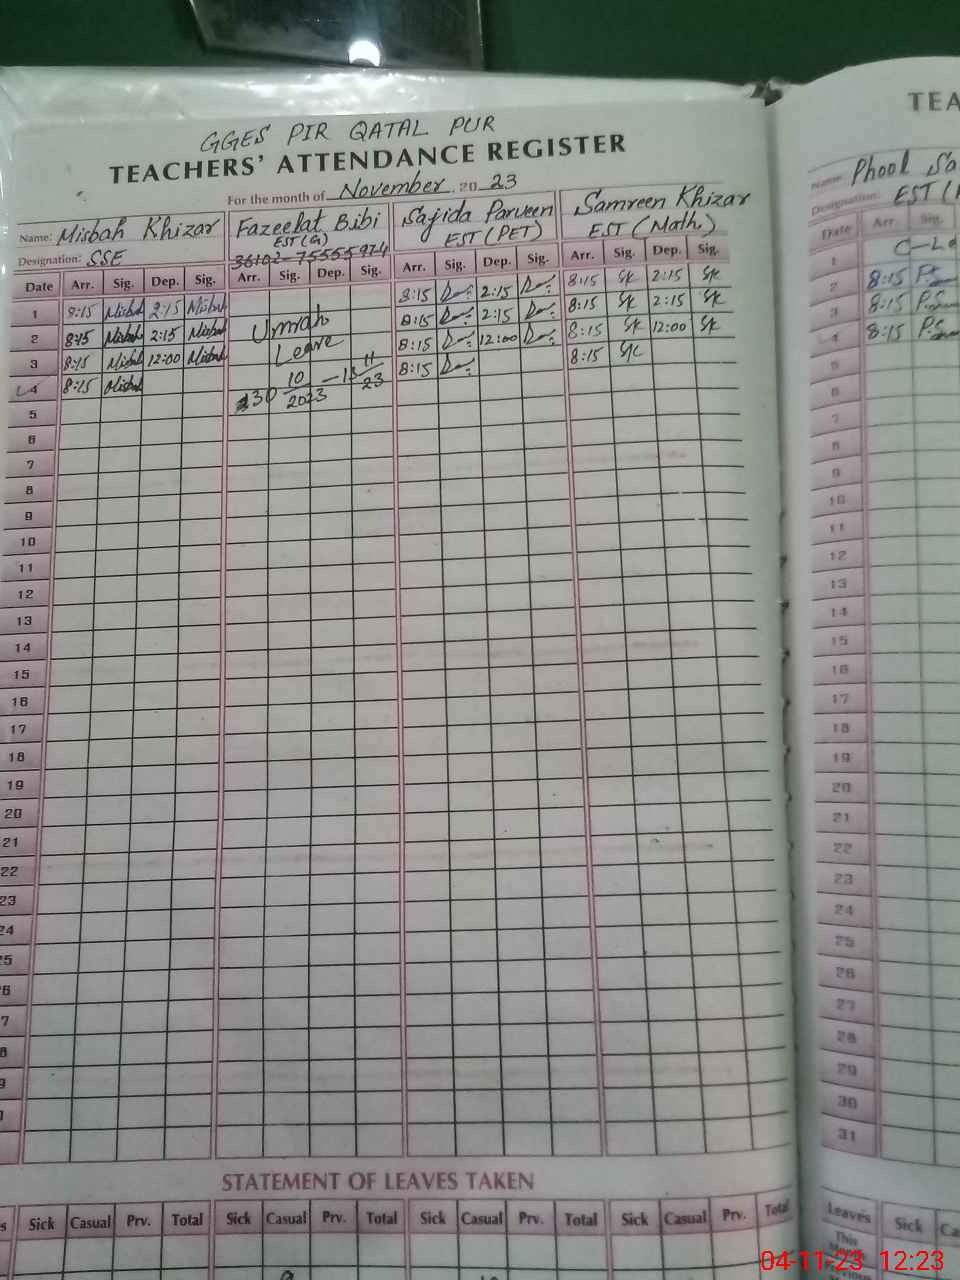 GGES PIR QATAL PUR
TEACHERS' ATTENDANCE REGISTER
For the month of November 20 23
Name: Misbah Khizar Fazeelat Bibi Sajida Parveen Samreen Khizar
EST (G) EST (PET) EST (Math)
Designation: SSE 36102-75555974
Date Arr. Sig. Dep. Sig. Arr. Sig. Dep. Sig. Arr. Sig. Dep. Sig. Arr. Sig. Dep. Sig.
1 8:15 Misbah 2:15 Misbah 8:15 2:15 8:15 SK 2:15 SK
2 8:15 Misbah 2:15 Misbah Umrah 8:15 2:15 8:15 SK 2:15 SK
3 8:15 Misbah 12:00 Misbah Leave 8:15 12:00 8:15 SK 12:00 SK
4 8:15 Misbah 30 10/2023 – 13 11/23 8:15 8:15 SK
5
6
7
8
9
10
11
12
13
14
15
16
17
18
19
20
21
22
23
24
25
26
27
28
29
30
STATEMENT OF LEAVES TAKEN
Sick Casual Prv. Total Sick Casual Prv. Total Sick Casual Prv. Total Sick Casual Prv. Total
TEA
Name: Phool Sa
Designation: EST (
Date Arr. Sig.
1 C-Le
2 8:15 P.S
3 8:15 P.S
4 8:15 P.S
5
6
7
8
9
10
11
12
13
14
15
16
17
18
19
20
21
22
23
24
25
26
27
28
29
30
31
Leaves Sick Ca
This
04-11-23 12:23